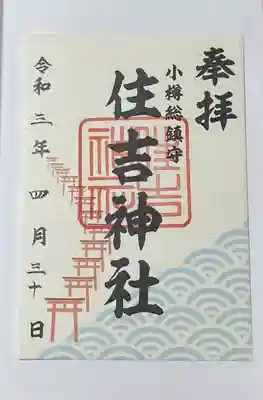 奉拝
小樽総鎮守
住吉神社
令和三年四月三十日